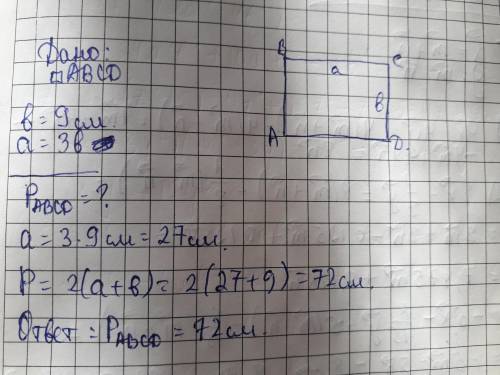 Дано:
□ABCD
в = 9 см
a = 3в
P ABCD = ?
a = 3·9 см = 27 см.
P = 2(a+в) = 2(27+9) = 72 см.
Ответ = P ABCD = 72 см.
B
C
a
в
A
D.